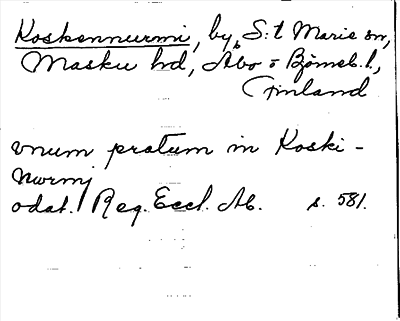 Koskennurmi, by, S:t Marie sn,
Masku hd, Åbo o Björneb. l.,
Finland
vnum pratum in Koski-
nwrmj
odat. Reg. Eccl. Ab. s. 581.